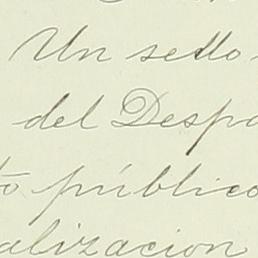 Un sello
del Despa
to público
alizacion